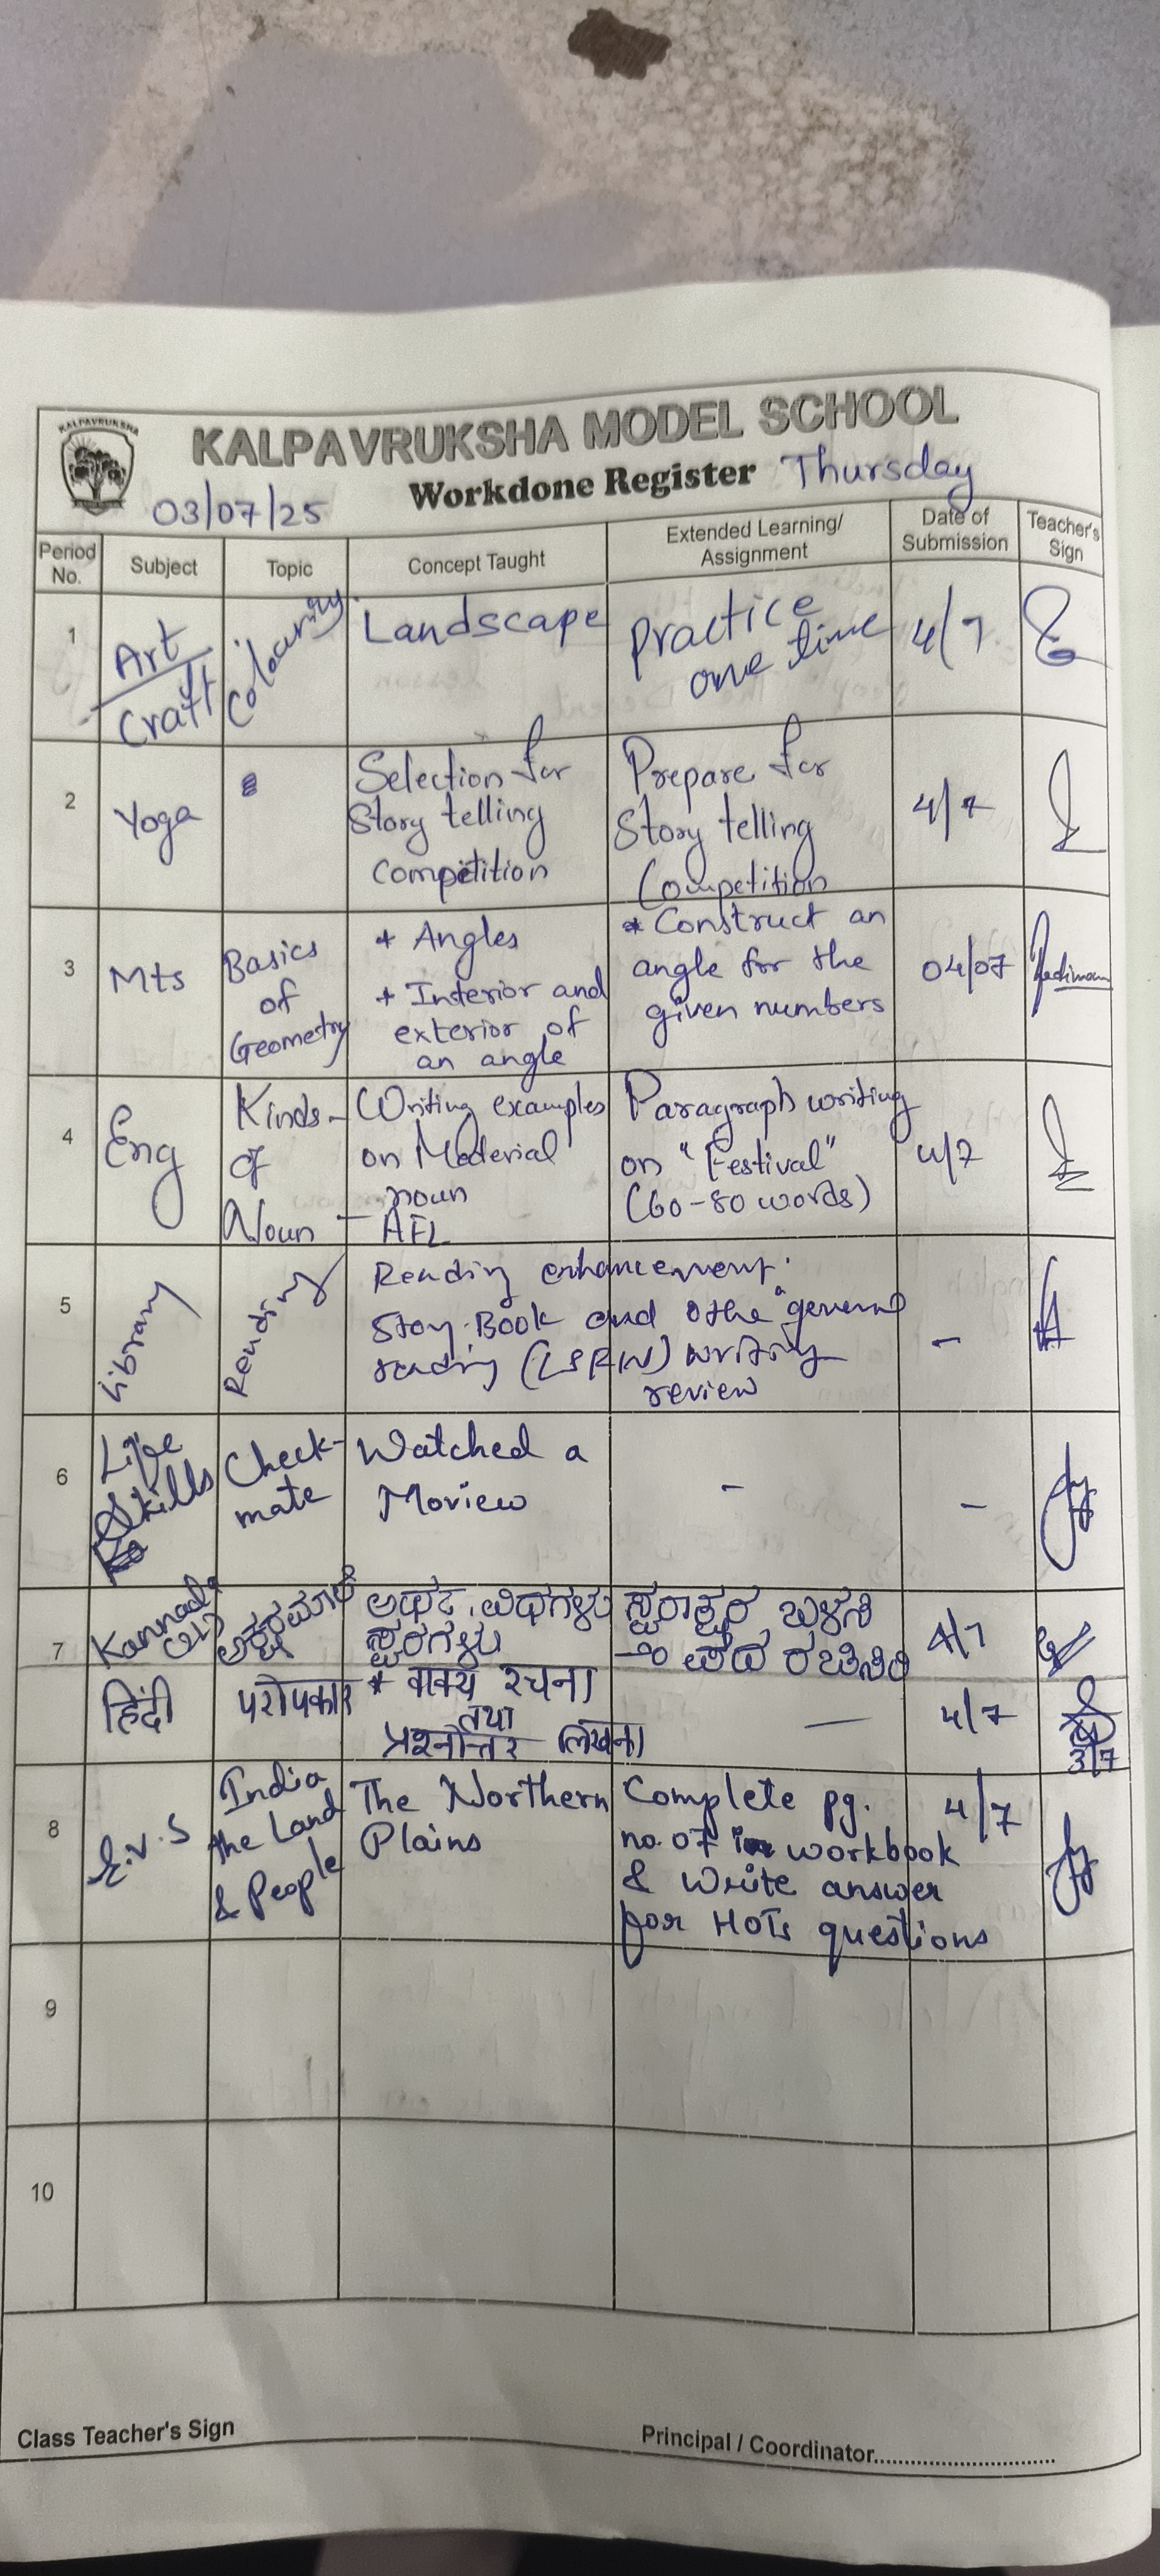 KALPAVRUKSHA
KALPAVRUKSHA MODEL SCHOOL
Workdone Register Thursday
03/07/25
Period No. Subject Topic Concept Taught Extended Learning/ Assignment Date of Submission Teacher's Sign
1 Art/Craft Colouring. Landscape Practice one time 4/7
2 Yoga Selection for Story telling Competition Prepare for Story telling Competition 4/7
3 Mts Basics of Geometry * Angles
* Interior and exterior of an angle
* Construct an angle for the given numbers 04/07
4 Eng Kinds of Noun - Writing examples on Material noun
- AFL
Paragraph writing on "Festival" (60-80 words) 4/7
5 Library Reading Reading enhancement.
Story Book and othe general
reading (LSRW) writing
review -
6 Life Skills Check-mate Watched a Moview - -
7 Kannada ಅಕ್ಷರಮಾಲೆ ಅರ್ಥ, ವಿಧಗಳು
ಸ್ವರಗಳು
ಸ್ವರಾಕ್ಷರ ಬಳಸಿ
ಪದ ರಚಿಸಿರಿ 4/7
हिंदी परोपकार * वाक्य रचना
तथा
प्रश्नोत्तर लिखना — 4/7
3/7
8 E.V.S India the Land & People The Northern Plains Complete pg. no. 07 in workbook & Write answer for HOTs questions 4/7
9
10
Class Teacher's Sign Principal / Coordinator